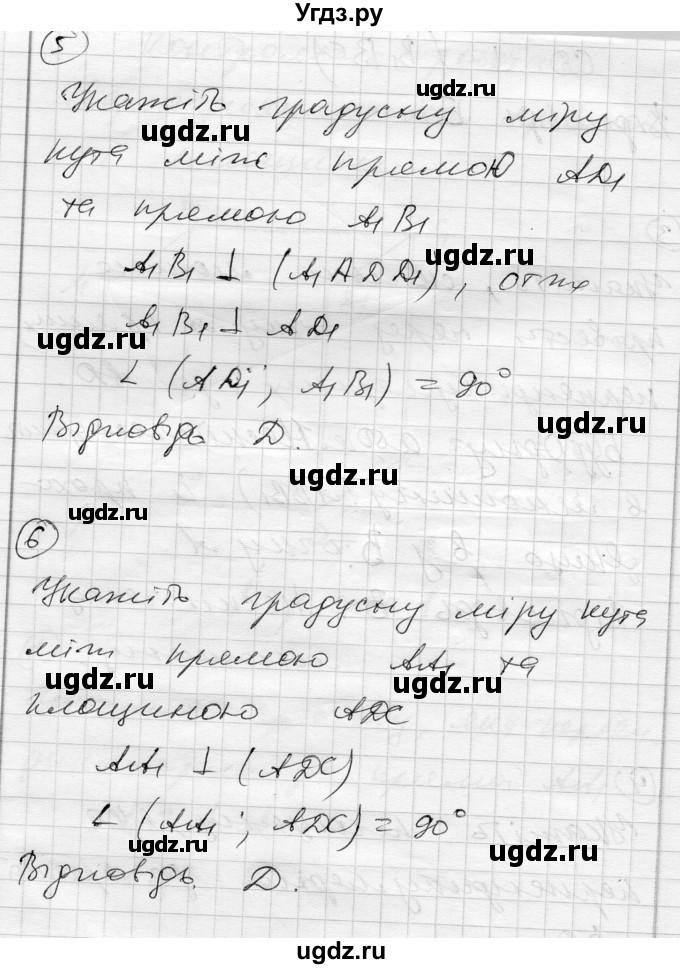 Угдз.ру
5
Укажіть градусну міру
кута між прямою AD₁
та прямою A₁B₁
A₁B₁ ⊥ (A₁ADD₁), отже
A₁B₁ ⊥ AD₁
∠ (AD₁; A₁B₁) = 90°
Відповідь Д.
6
Укажіть градусну міру кута
між прямою AA₁ та
площиною ADC
AA₁ ⊥ (ADC)
∠ (AA₁; ADC) = 90°
Відповідь. Д.
ugdz.ru
ugdz.ru
ugdz.ru
ugdz.ru
ugdz.ru
ugdz.ru
ugdz.ru
ugdz.ru
ugdz.ru
ugdz.ru
ugdz.ru
ugdz.ru
ugdz.ru
ugdz.ru